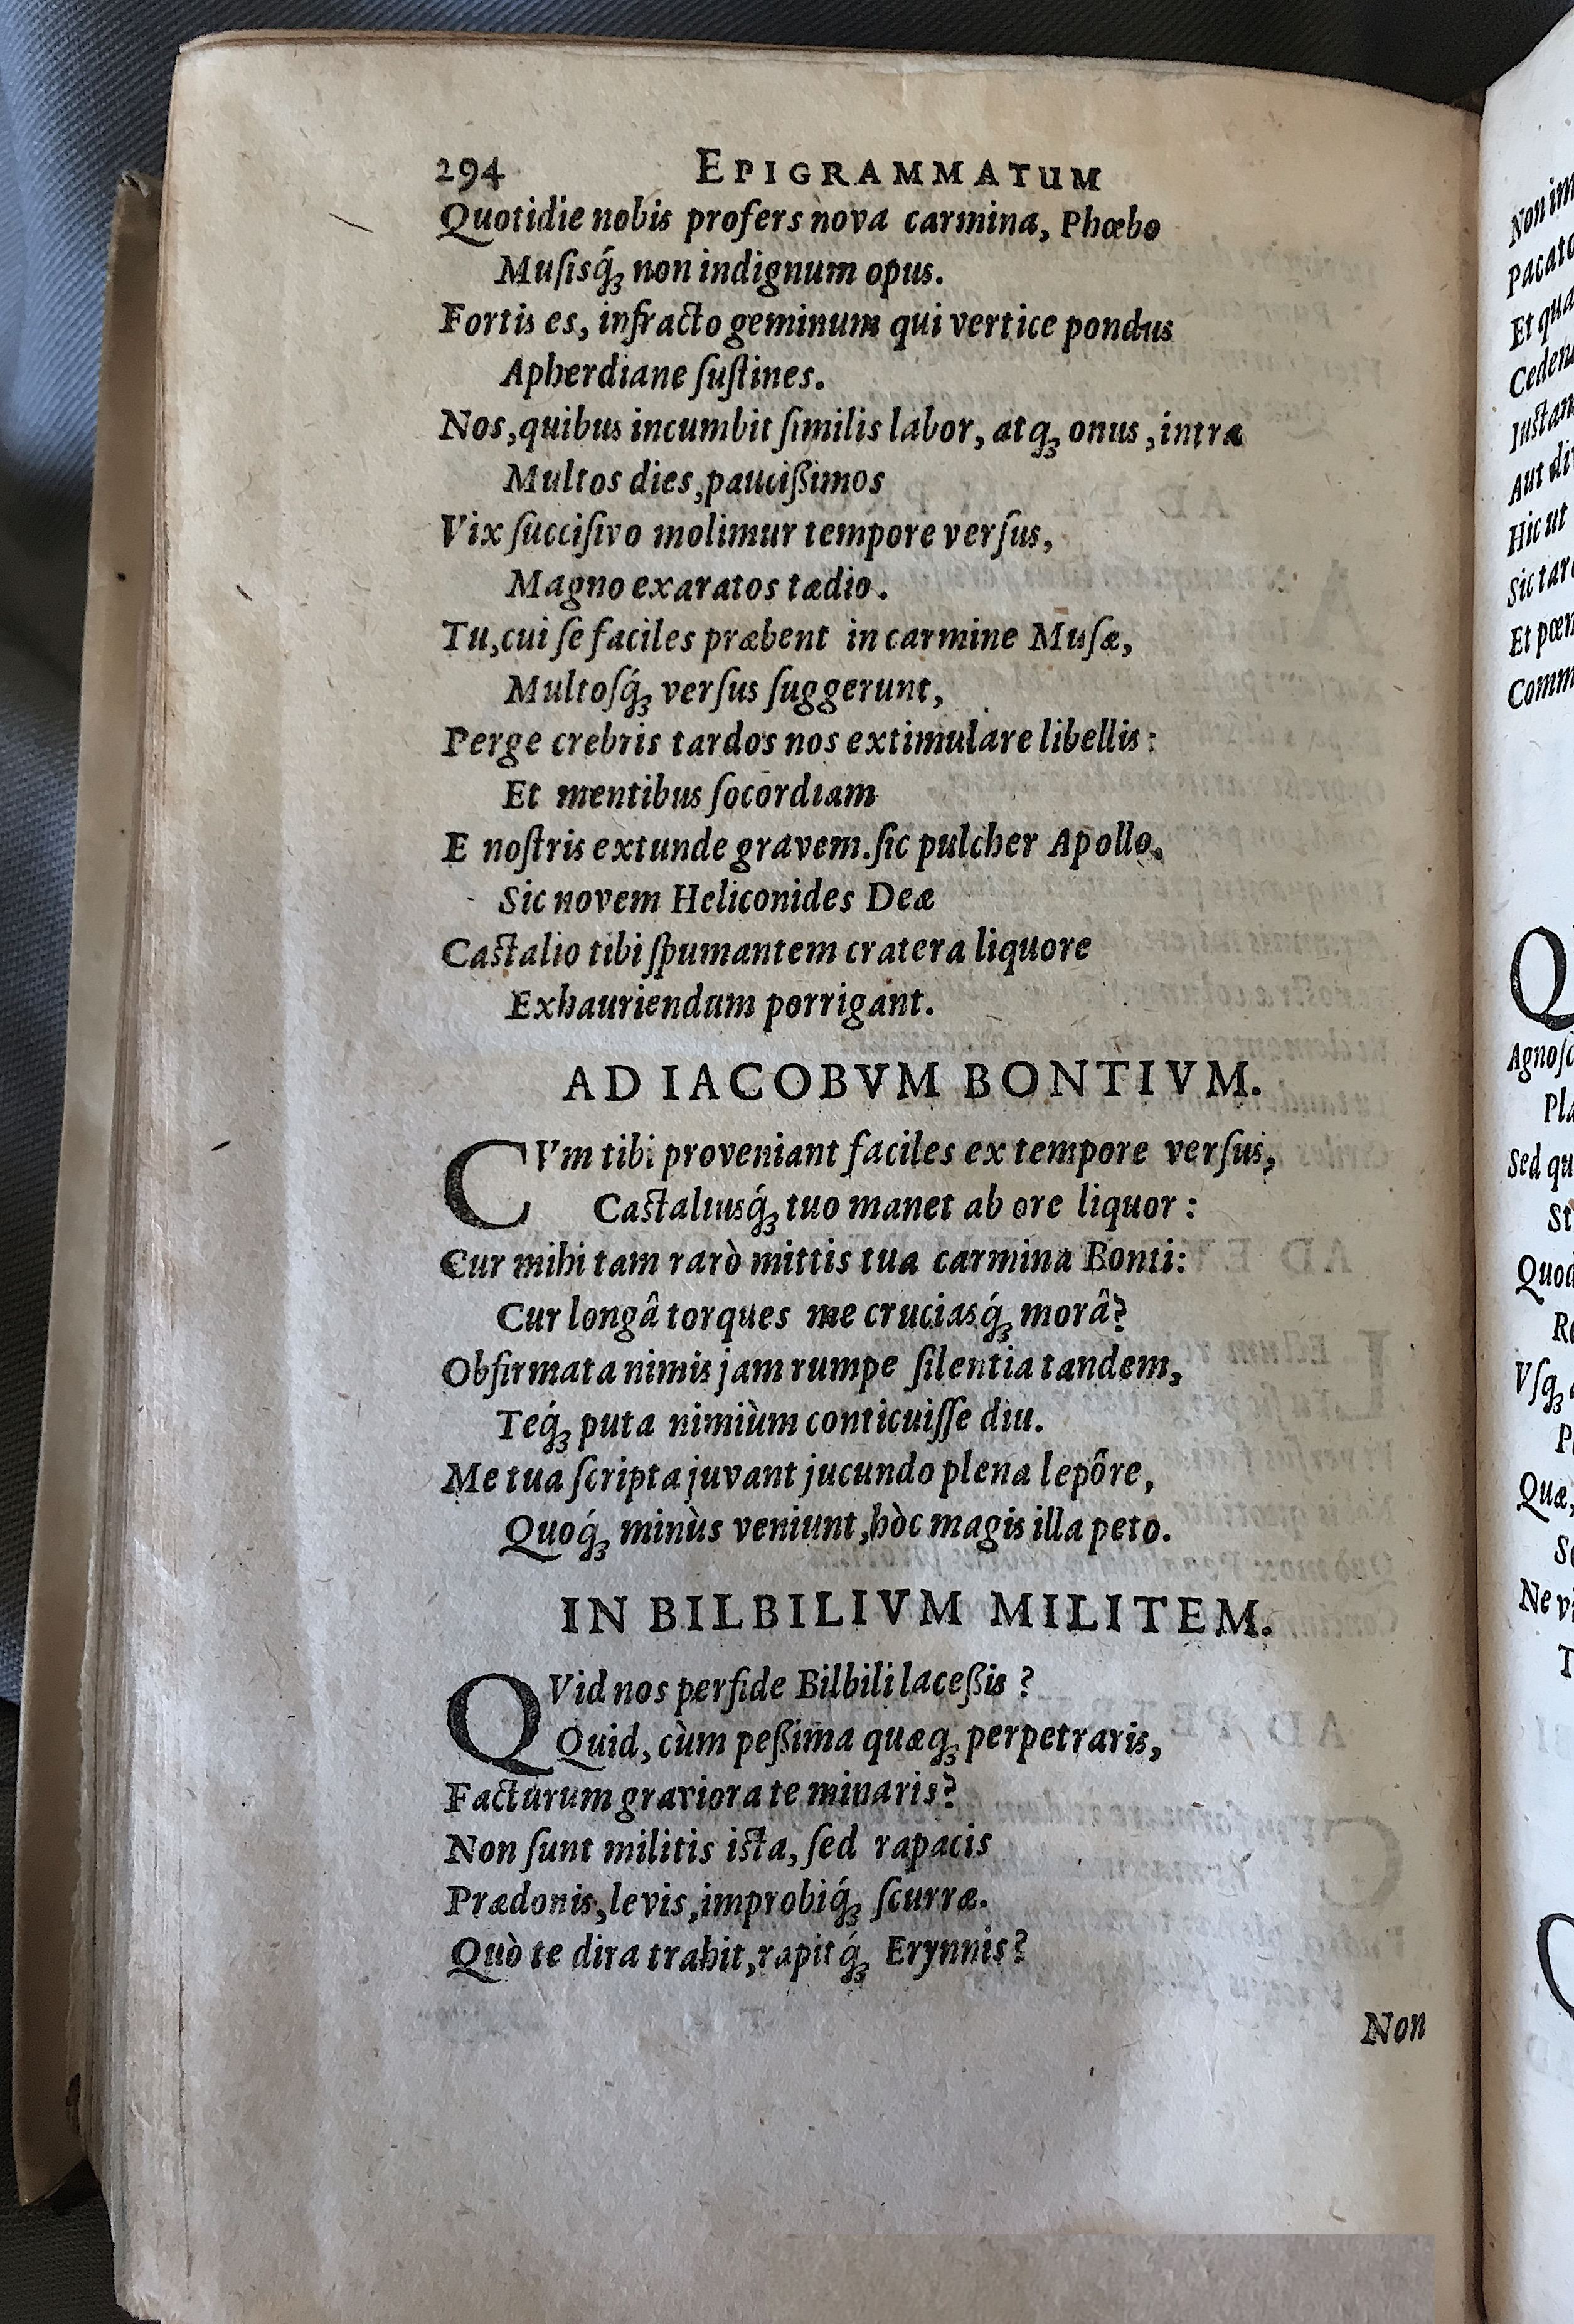 294 EPIGRAMMATUM
Quotidie nobis profers nova carmina, Phœbo
Muſisq́ꝫ non indignum opus.
Fortis es, infracto geminum qui vertice pondus
Apherdiane ſuſtines.
Nos, quibus incumbit ſimilis labor, atqꝫ onus, intra
Multos dies, paucißimos
Vix ſucciſivo molimur tempore verſus,
Magno exaratos tædio.
Tu, cui ſe faciles præbent in carmine Muſæ,
Multoſq́ꝫ verſus ſuggerunt,
Perge crebris tardos nos extimulare libellis:
Et mentibus ſocordiam
E noſtris extunde gravem. ſic pulcher Apollo,
Sic novem Heliconides Deæ
Caſtalio tibi ſpumantem cratera liquore
Exhauriendum porrigant.
AD IACOBVM BONTIVM.
CVm tibi proveniant faciles ex tempore verſus,
Caſtaliusq́ꝫ tuo manet ab ore liquor:
Cur mihi tam rarò mittis tua carmina Bonti:
Cur longâ torques me cruciasq́ꝫ morâ?
Obfirmata nimis jam rumpe ſilentia tandem,
Teq́ꝫ puta nimiùm conticuiſſe diu.
Me tua ſcripta juvant jucundo plena lepôre,
Quoq́ꝫ minùs veniunt, hòc magis illa peto.
IN BILBILIVM MILITEM.
QVid nos perfide Bilbili laceßis?
Quid, cùm peßima quæqꝫ perpetraris,
Facturum graviora te minaris?
Non ſunt militis iſta, ſed rapacis
Prædonis, levis, improbiq́ꝫ ſcurræ.
Quò te dira trahit, rapitq́ꝫ Erynnis?
Non